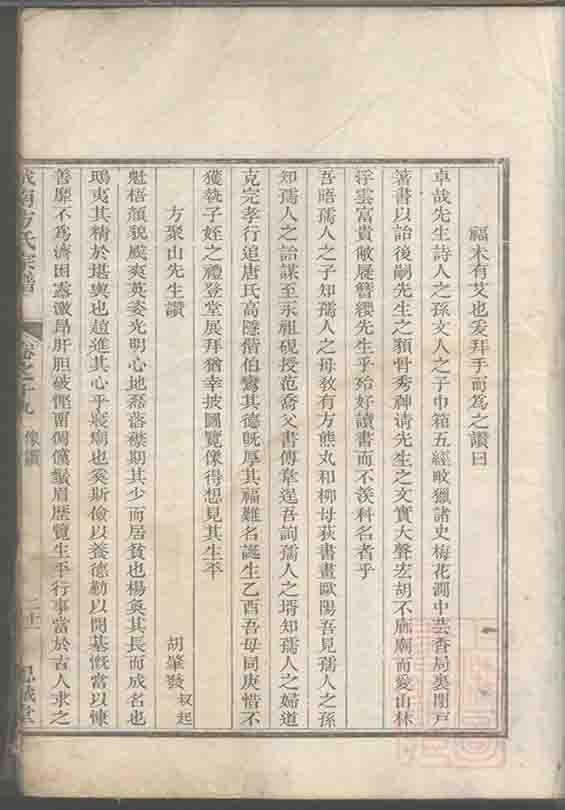 福未有艾也爰拜手而為之讚曰
卓哉先生詩人之孫文人之子巾箱五經畋獵諸史梅花澗中芸香局裏閉戶
著書以詒後嗣先生之額骨秀神清先生之文實大聲宏胡不廊廟而愛山林
浮雲富貴敝屣簪纓先生乎殆好讀書而不羨科名者乎
吾晤孺人之子知孺人之母敎有方熊丸和柳母荻書畫歐陽吾見孺人之孫
知孺人之詒謀至永祖硯授范喬父書傳韋逞吾詢孺人之壻知孺人之婦道
克完孝行追唐氏高隱偕伯鸞其德旣厚其福難名誕生乙酉吾母同庚惜不
獲執子姪之禮登堂展拜猶幸披圖覽像得想見其生平
方聚山先生讚
胡肇發 叔起
魁梧頎貌颯爽英姿光明心地磊落襟期其少而居貧也楊奐其長而成名也
鴟夷其精於堪輿也趙進其心乎寢廟也奚斯儉以養德勤以開基慨當以慷
善靡不為濟困露激昂肝胆破慳留倜儻鬚眉歷覽生平行事當於古人求之
城南方氏宗譜
卷之十九
像讚
二十二
思誠堂